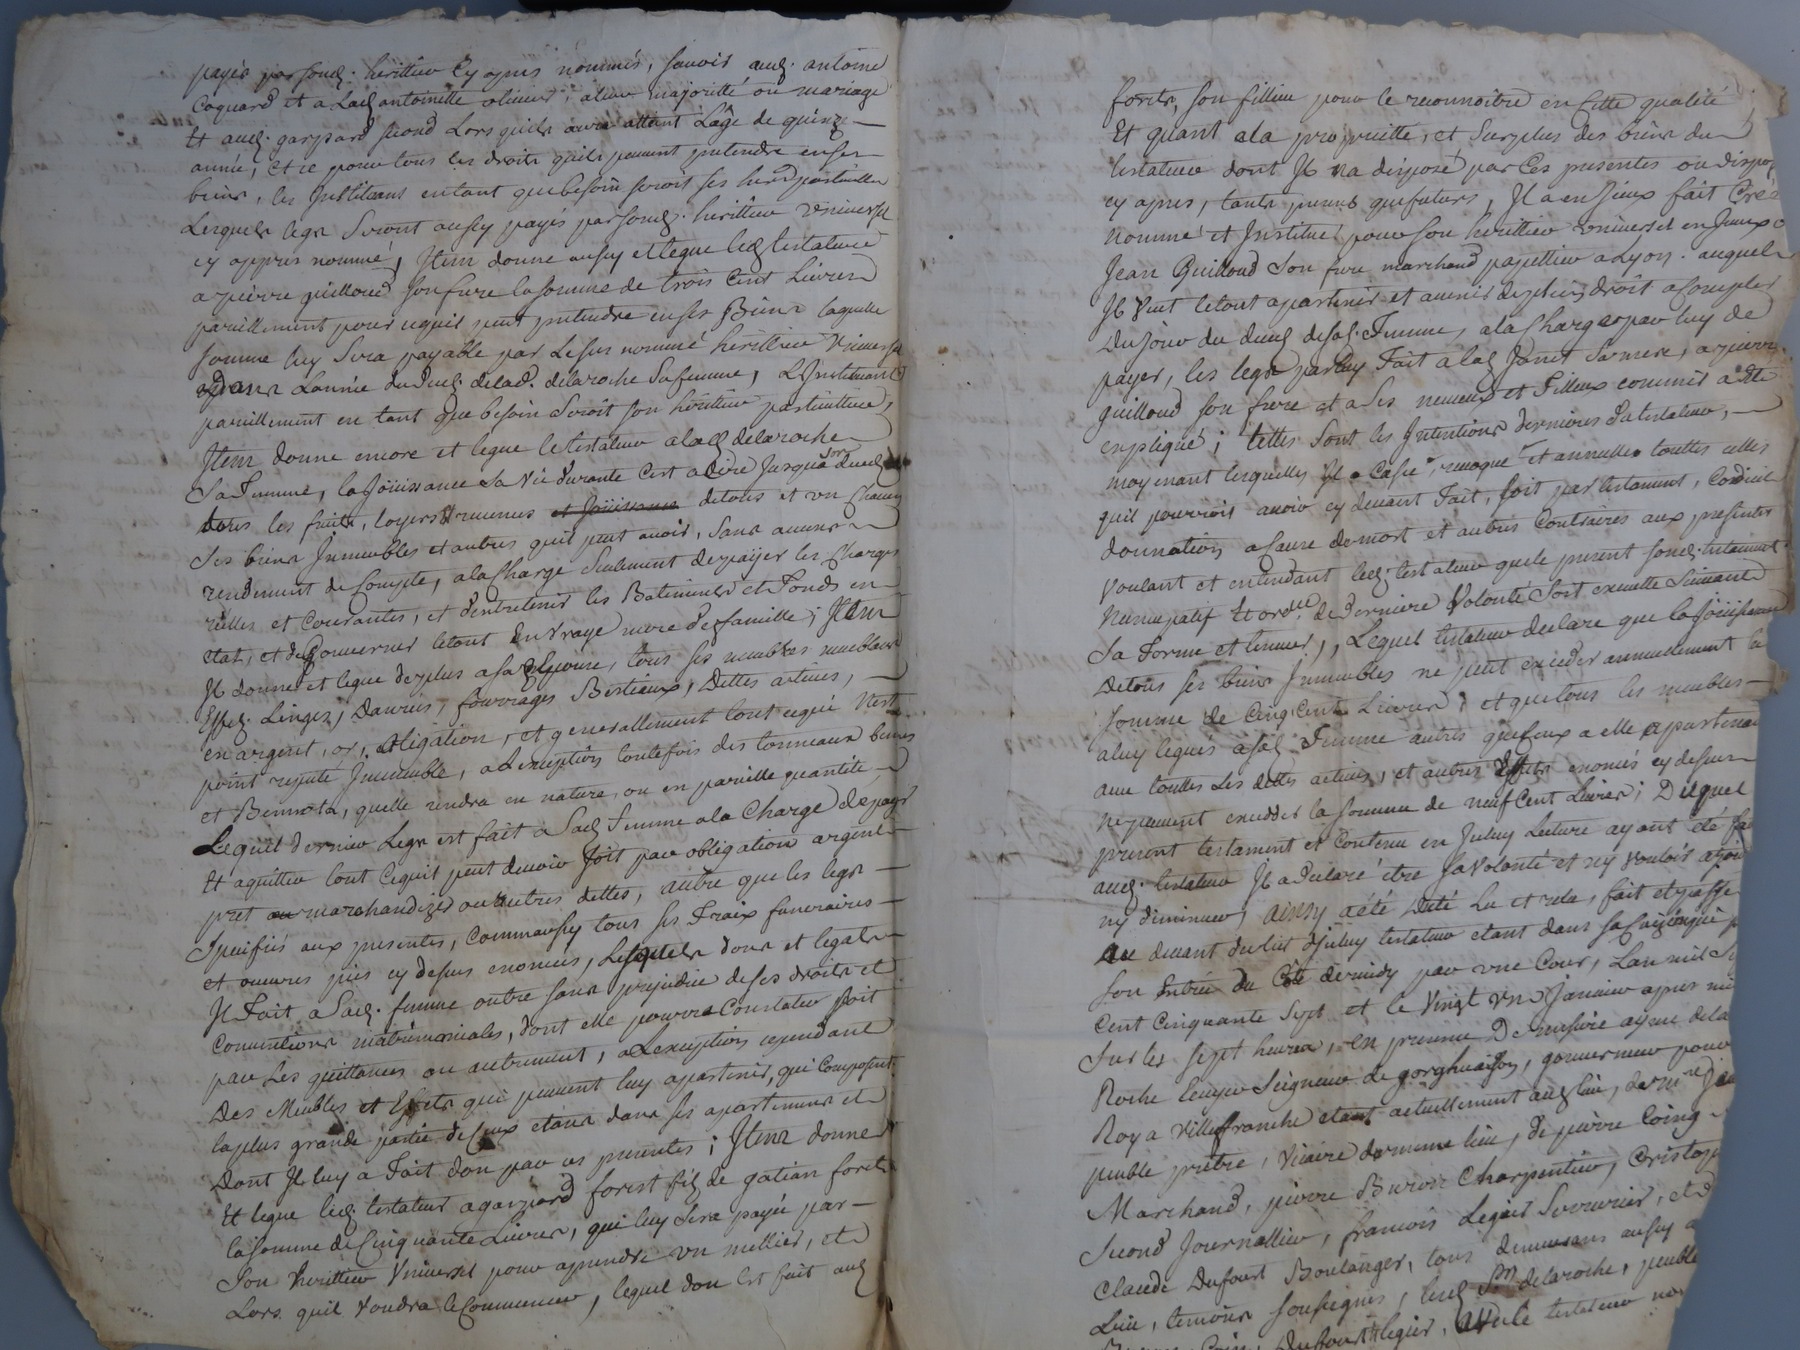 payés par sond. herittier Cy apres nommés, savoir aud. antoine
Coquard et a Lad antoinette olinier, aleur majoritté ou mariage
Et aud. gaspard second Lors quils aura attaint L'âge de quinze
année, et ce pour tous les droits quils peuvent pretendre en ses
biens, les Instituant entant que besoin seroit ses herrs particullier
Lesquels legs seront aussy payés par sond. herittier universel
cy appres nommé, Item donne aussy et legue led testateur
a pierre guilloud son frere la somme de trois Cent Livres
pareillement pour ce quil peut pretendre en ses Biens laquelle
somme luy sera payable par Le sus nommé herittier universel
dans Lannée du decz. delad. delaroche sa femme, L'Instituant
pareillement en tant que besoin seroit son heritier particullier,
Item donne encore et legue le testateur alad delaroche
Sa Femme, la Joüissance sa vie durante C'est a dire Jusqua son decez
tous les fruits, loyers & revenus et Joüissance detous et un Chacun
ses biens Immeubles et autres quil peut avoir, sans aucun
rendement de Compte, ala Charge seulement de païjer les Charges
réelles et Courantes, et d'entretenir les Batiments et Fonds en
etat, et de Gouverner letout En vraye mere de famille; Item
Il donne et legue deplus asad Epouse, tous ses meubles meublant
Effets. Linges, Danrées, fourrages Bestiaux, Dettes actives,
en argent, or, obligation, et generallement tout ce qui N'est
point reputé Immeuble, a Lexeception toutefois des tonneaux bennes
et Bennots, quelle rendra en nature, ou en pareille quantité
Lequel dernier Legs est fait a Sad Femme ala Charge de payer
Et aquitter tout Cequil peut devoir soit par obligation argent
pret ou marchandizes ou autres dettes, autre que les legs
specifiés aux presentes, Comme aussy tous ses Fraix funeraires
et oeuvres pies cy dessus enoncées, Lesquels dons et legats
Il Fait a Sad. femme outre sans prejudice de ses droits et
Conventions matrimoniales, dont elle pourra Constater soit
par Les quittances ou autrement, a Lexception cependant
Des Meubles et Effets qui peuvent luy apartenir, qui Composent
la plus grande partie de Ceux etans dans ses apartemens et
Dont Il luy a Fait don par ces presentes; Item donne
Et legue led. testateur a gaspard forest fils de gatian forest
la Somme de Cinquante Livres, qui luy sera payée par
Son Herittier Universel pour aprendre un mettier, et
Lors quil voudra le Commencer, lequel don Est fait aud
forets, son fillieu pour le reconnoitre en Cette qualité
Et quant ala propriette, et surplus des biens du
testateur dont Il na disposé par Ces presentes ou dispo
cy apres, tants presents que futurs, Il a en Jceux fait Créé
nommé et Institué pour son herittier universel en Jceux
Jean Guilloud son frere marchand papettier a Lyon. auquel
Il Veut letout apartenir et avenir de plein droit a Compter
Du jour du decez desad. Femme, ala Charge par luy de
payer, les legs par luy Fait alad Janet sa mere, a pierre
guilloud son frere et a ses neveux et Filleux comme a été
expliqué; telles sont les Intentions dernieres du testateur,
moyenant lesquelles Il a Cassé, revoqué et annullé touttes celles
quil pourrois avoir cy devant Fait, soit par testament, Codicil
donnation acause demort et autres Contraires aux presentes
Voulant et entendant led. testateur que le present sond. testament
Nuncupatif et ordre de Derniere Volonté soit executté suivant
sa Forme et teneur, Lequel testateur declare que la Joüissance
Detous ses biens Immeubles ne peut exceder annuellement la
somme de Cinq Cent Livres; et quetous les meubles
aluy legués asad Femme autres que Ceux a elle apartenan
avec touttes Les dettes actives, et autres Effets enoncés cy dessus
ne peuvent exceder la somme de neuf Cent Livres; Duquel
present testament et Contenu en Iceluy Lecture ayant été fai
aud. testateur Il a declaré être sa Volonté et ny vouloir ajou
ny diminuer, ainsy a été Dicté Lu et relu, fait et passé
au devant du lit d'Iceluy testateur etant dans sa
son Entrée du Côté de midy par une Cour, L'an mil S
Cent Cinquante Sept et le Vingt un Janvier apres mi
sur les sept heures, en presence De messire ayme dela
Roche Ecuyer Seigneur de gorghuaison, gouverneur pour
Roy a Villefranche etant actuellement aud lieu, de mre Jea
peuble prêtre, Vicaire dumeme lieu, de pierre Coing
Marchand, pierre Buiron Charpentier, Cristop
Second Journallier, francois Legier Serrurier, et d
Claude Dufourt Boulanger, tous demeurans aussy a
Lieu, temoins soussignés, lesd Srs delaroche, peuble
Coin, Dufourt & legier, avec le testateur no